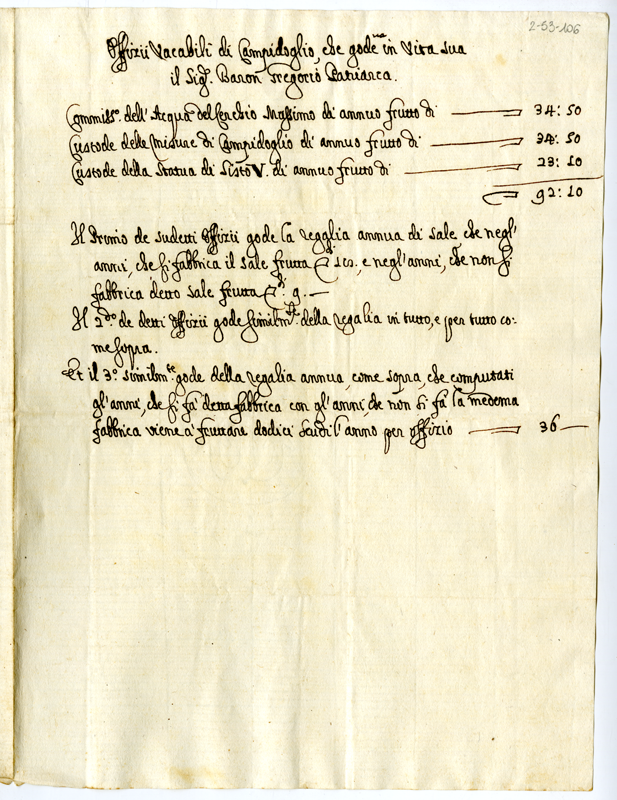 2-53-106
Offizii Vacabili di Campidoglio, che gode in Vita sua
il Sig.r Baron Gregorio Patriarca.
Commiss.o dell'Acqua del Cerchio Massimo di annuo frutto di 34: 50
Custode della Misure di Campidoglio di annuo frutto di 34: 50
Custode della Statua di Sisto V. di annuo frutto di 23: 10
92: 10
Il Primo de sudetti Offizii gode la regaglia annua di Sale che negl'
anni, che si fabbrica il Sale frutta e negl'anni, che non si
fabbrica detto Sale frutta 9. —
Il 2.do de detti Offizii gode similm.te della regalia in tutto, e per tutto co-
me sopra.
Et il 3.o similm.te gode della regalia annua, come sopra, che computati
gl'anni, che si fà detta fabbrica con gl'anni che non si fà la medema
fabbrica viene à fruttare dodici scudi l'anno per offizio 36 —